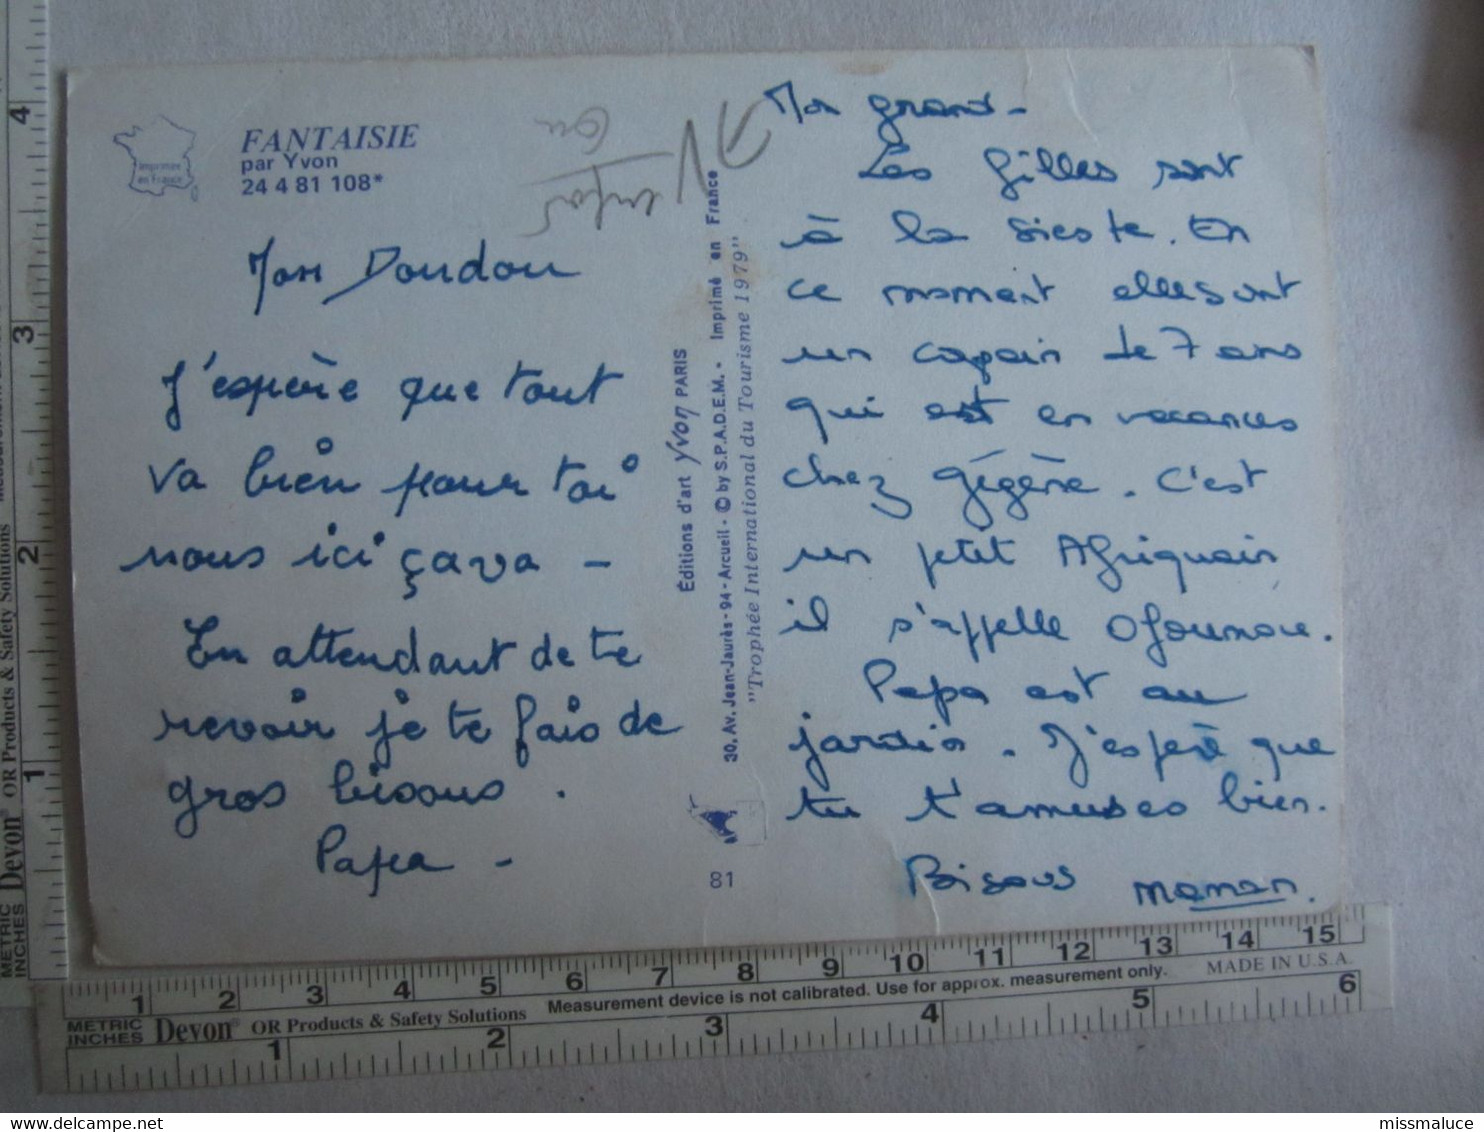 Imprimée
en France
FANTAISIE
par Yvon
24 4 81 108*
Mon Doudou
J'espère que tout
va bien pour toi
nous ici ça va –
En attendant de te
revoir je te fais de
gros bisous .
Papa –
Éditions d'art Yvon PARIS
30, Av. Jean-Jaurès - 94 - Arcueil - © by S.P.A.D.E.M. - Imprimé en France
"Trophée International du Tourisme 1979"
81
Mon grand –
Les filles sont
à la sieste. En
ce moment elles ont
un copain de 7 ans
qui est en vacances
chez gégène. C'est
un petit Afriquain
il s'appelle Ofoumou.
Papa est au
jardin. J'espère que
tu t'amuses bien.
Bisous Maman.
1 2 3 4 5 6 7 8 9 10 11 12 13 14 15
METRIC
INCHES
Devon® OR Products & Safety Solutions
Measurement device is not calibrated. Use for approx. measurement only.
MADE IN U.S.A.
1 2 3 4 5 6
METRIC
INCHES
Devon® OR Products & Safety Solutions
1 2 3 4
missmaluce
www.delcampe.net